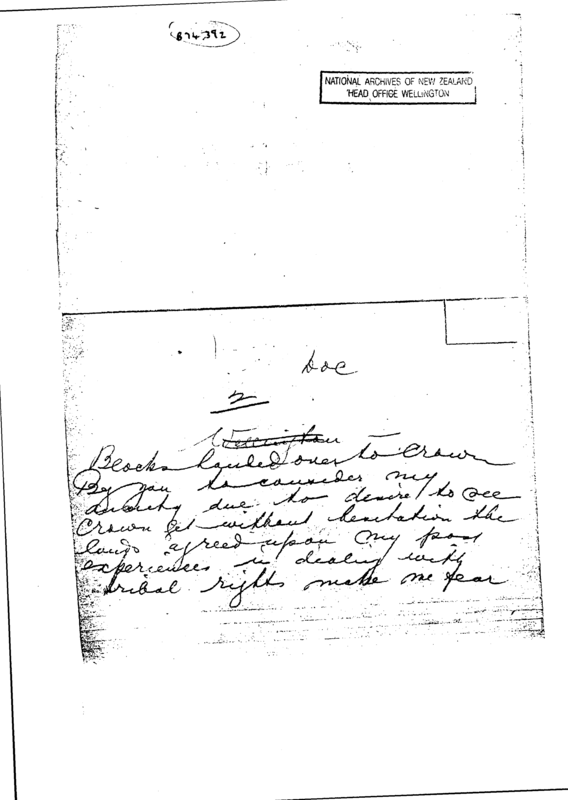 874392
NATIONAL ARCHIVES OF NEW ZEALAND
HEAD OFFICE WELLINGTON
Doc
2
Wellington
Blocks handed over to Crown
Beg you to consider my
anxiety due to desire to see
Crown get without hesitation the
lands agreed upon my past
experiences in dealing with
tribal rights make me fear